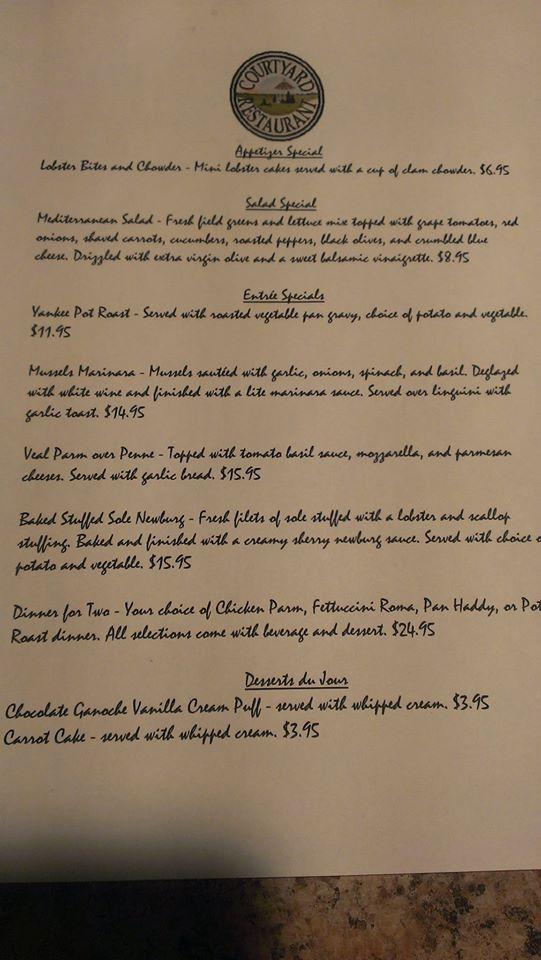 COURTYARD
RESTAURANT
Appetizer Special
Lobster Bites and Chowder - Mini lobster cakes served with a cup of clam chowder. $6.95
Salad Special
Mediterranean Salad - Fresh field greens and lettuce mix topped with grape tomatoes, red
onions, shaved carrots, cucumbers, roasted peppers, black olives, and crumbled blue
cheese. Drizzled with extra virgin olive and a sweet balsamic vinaigrette. $8.95
Entrée Specials
Yankee Pot Roast - Served with roasted vegetable pan gravy, choice of potato and vegetable.
$11.95
Mussels Marinara - Mussels sautéed with garlic, onions, spinach, and basil. Deglazed
with white wine and finished with a lite marinara sauce. Served over linguini with
garlic toast. $14.95
Veal Parm over Penne - Topped with tomato basil sauce, mozzarella, and parmesan
cheeses. Served with garlic bread. $15.95
Baked Stuffed Sole Newburg - Fresh filets of sole stuffed with a lobster and scallop
stuffing. Baked and finished with a creamy sherry newburg sauce. Served with choice o
potato and vegetable. $15.95
Dinner for Two - Your choice of Chicken Parm, Fettuccini Roma, Pan Haddy, or Pot
Roast dinner. All selections come with beverage and dessert. $24.95
Desserts du Jour
Chocolate Ganoche Vanilla Cream Puff - served with whipped cream. $3.95
Carrot Cake - served with whipped cream. $3.95